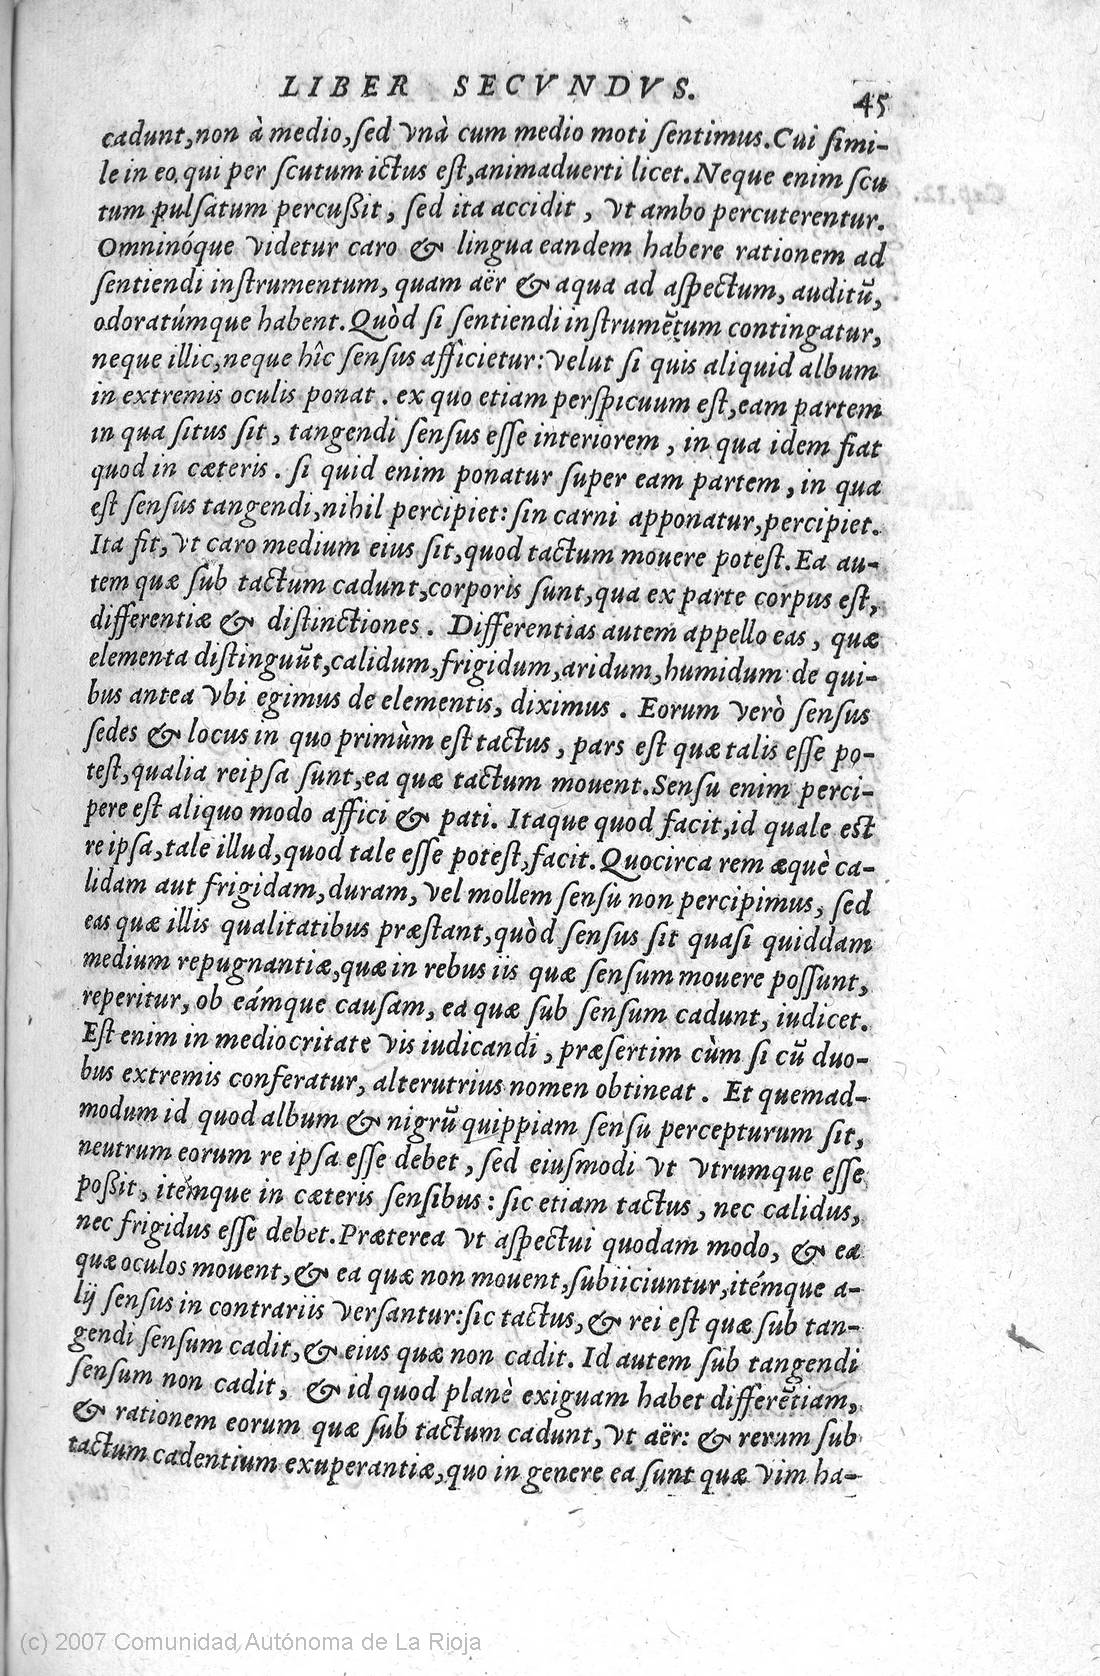 LIBER SECVNDVS.
45
cadunt, non à medio, sed vnà cum medio moti sentimus. Cui simi-
le in eo, qui per scutum ictus est, animaduerti licet. Neque enim scu
tum pulsatum percußit, sed ita accidit, vt ambo percuterentur.
Omninóque videtur caro & lingua eandem habere rationem ad
sentiendi instrumentum, quam aër & aqua ad aspectum, auditū,
odoratúmque habent. Quòd si sentiendi instrumētum contingatur,
neque illic, neque hîc sensus afficietur: velut si quis aliquid album
in extremis oculis ponat. ex quo etiam perspicuum est, eam partem
in qua situs sit, tangendi sensus esse interiorem, in qua idem fiat
quod in cæteris. si quid enim ponatur super eam partem, in qua
est sensus tangendi, nihil percipiet: sin carni apponatur, percipiet.
Ita fit, vt caro medium eius sit, quod tactum mouere potest. Ea au-
tem quæ sub tactum cadunt, corporis sunt, qua ex parte corpus est,
differentiæ & distinctiones. Differentias autem appello eas, quæ
elementa distinguūt, calidum, frigidum, aridum, humidum de qui-
bus antea vbi egimus de elementis, diximus. Eorum verò sensus
sedes & locus in quo primùm est tactus, pars est quæ talis esse po-
test, qualia reipsa sunt, ea quæ tactum mouent. Sensu enim perci-
pere est aliquo modo affici & pati. Itaque quod facit, id quale est
re ipsa, tale illud, quod tale esse potest, facit. Quocirca rem æquè ca-
lidam aut frigidam, duram, vel mollem sensu non percipimus, sed
eas quæ illis qualitatibus præstant, quòd sensus sit quasi quiddam
medium repugnantiæ, quæ in rebus iis quæ sensum mouere possunt,
reperitur, ob eámque causam, ea quæ sub sensum cadunt, iudicet.
Est enim in mediocritate vis iudicandi, præsertim cùm si cū duo-
bus extremis conferatur, alterutrius nomen obtineat. Et quemad-
modum id quod album & nigrū quippiam sensu percepturum sit,
neutrum eorum re ipsa esse debet, sed eiusmodi vt vtrumque esse
poßit, itémque in cæteris sensibus: sic etiam tactus, nec calidus,
nec frigidus esse debet. Præterea vt aspectui quodam modo, & ea
quæ oculos mouent, & ea quæ non mouent, subiiciuntur, itémque a-
lij sensus in contrariis versantur: sic tactus, & rei est quæ sub tan-
gendi sensum cadit, & eius quæ non cadit. Id autem sub tangendi
sensum non cadit, & id quod planè exiguam habet differētiam,
& rationem eorum quæ sub tactum cadunt, vt aër: & rerum sub
tactum cadentium exuperantiæ, quo in genere ea sunt quæ vim ha-
(c) 2007 Comunidad Autónoma de La Rioja